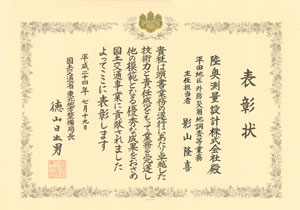 表彰状
陸奥測量設計株式会社殿
平田地区外防災用地調査等業務
主任担当者
影山隆喜
貴社は頭書業務の遂行にあたり卓越した
技術力と責任感をもって業務を完遂し
他の模範となる優秀な成果をおさめ
国土交通事業に貢献されました
よってここに表彰します
平成二十四年七月十九日
国土交通省東北地方整備局長
徳山日出男